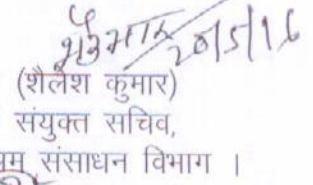 20/5/16
(शैलेश कुमार)
संयुक्त सचिव,
संसाधन विभाग ।